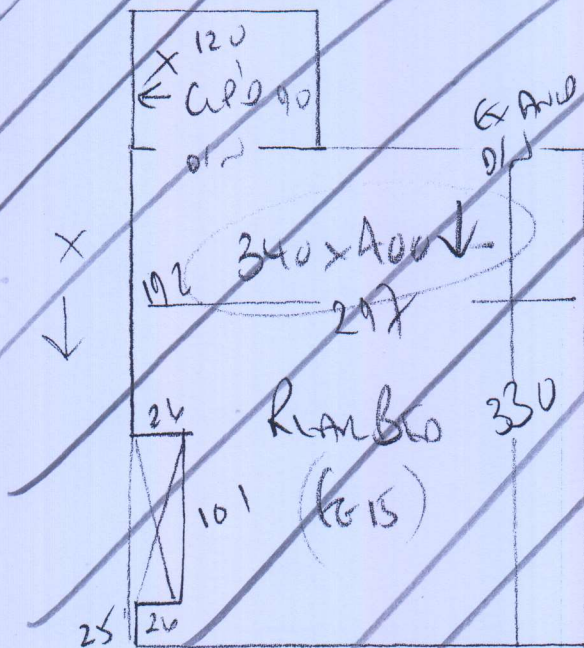 X 120
← CUPD 90
D/W
EX AND
D/W
X
↓
340 x 400 ↓
192
297
26
REAR BED
330
101
(G15)
25
26